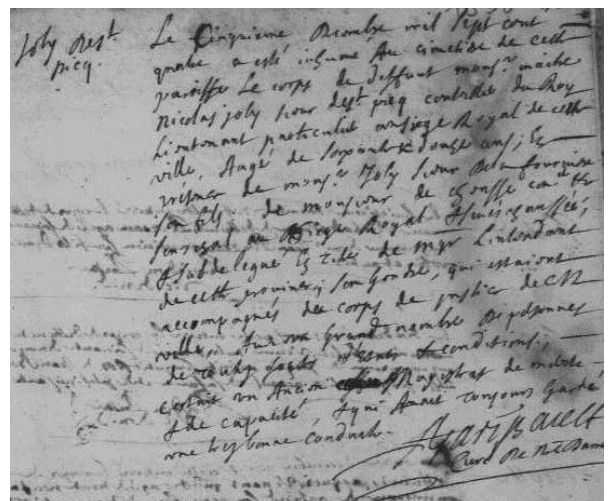 Joly Dest
picq.
Le Cinquiesme Decembre mil sept cent
quatre a esté inhumé Au cimetiere de cette
paroisse Le corps de deffunt mons.r maitre
Nicolas joly sieur dest picq du Roy
Lieutenant particulier au siege Royal de cette
ville, Aagé de soixante & douze ans, En
presence de mons.r Joly sieur
son fils, de monsieur de con.er
au siege Royal
subdelegué de mgr L'intendant
de cette province, son Gendre, qui estaient
accompagnés du corps de justice de cette
ville, & d'un grand nombre De personnes
de touttes sortes de conditions,
c'estoit un Ancien Magistrat de merite
& de capacité, & qui Avait tousjours Gardé
une tres bonne conduite.
Curé De N.re Dame